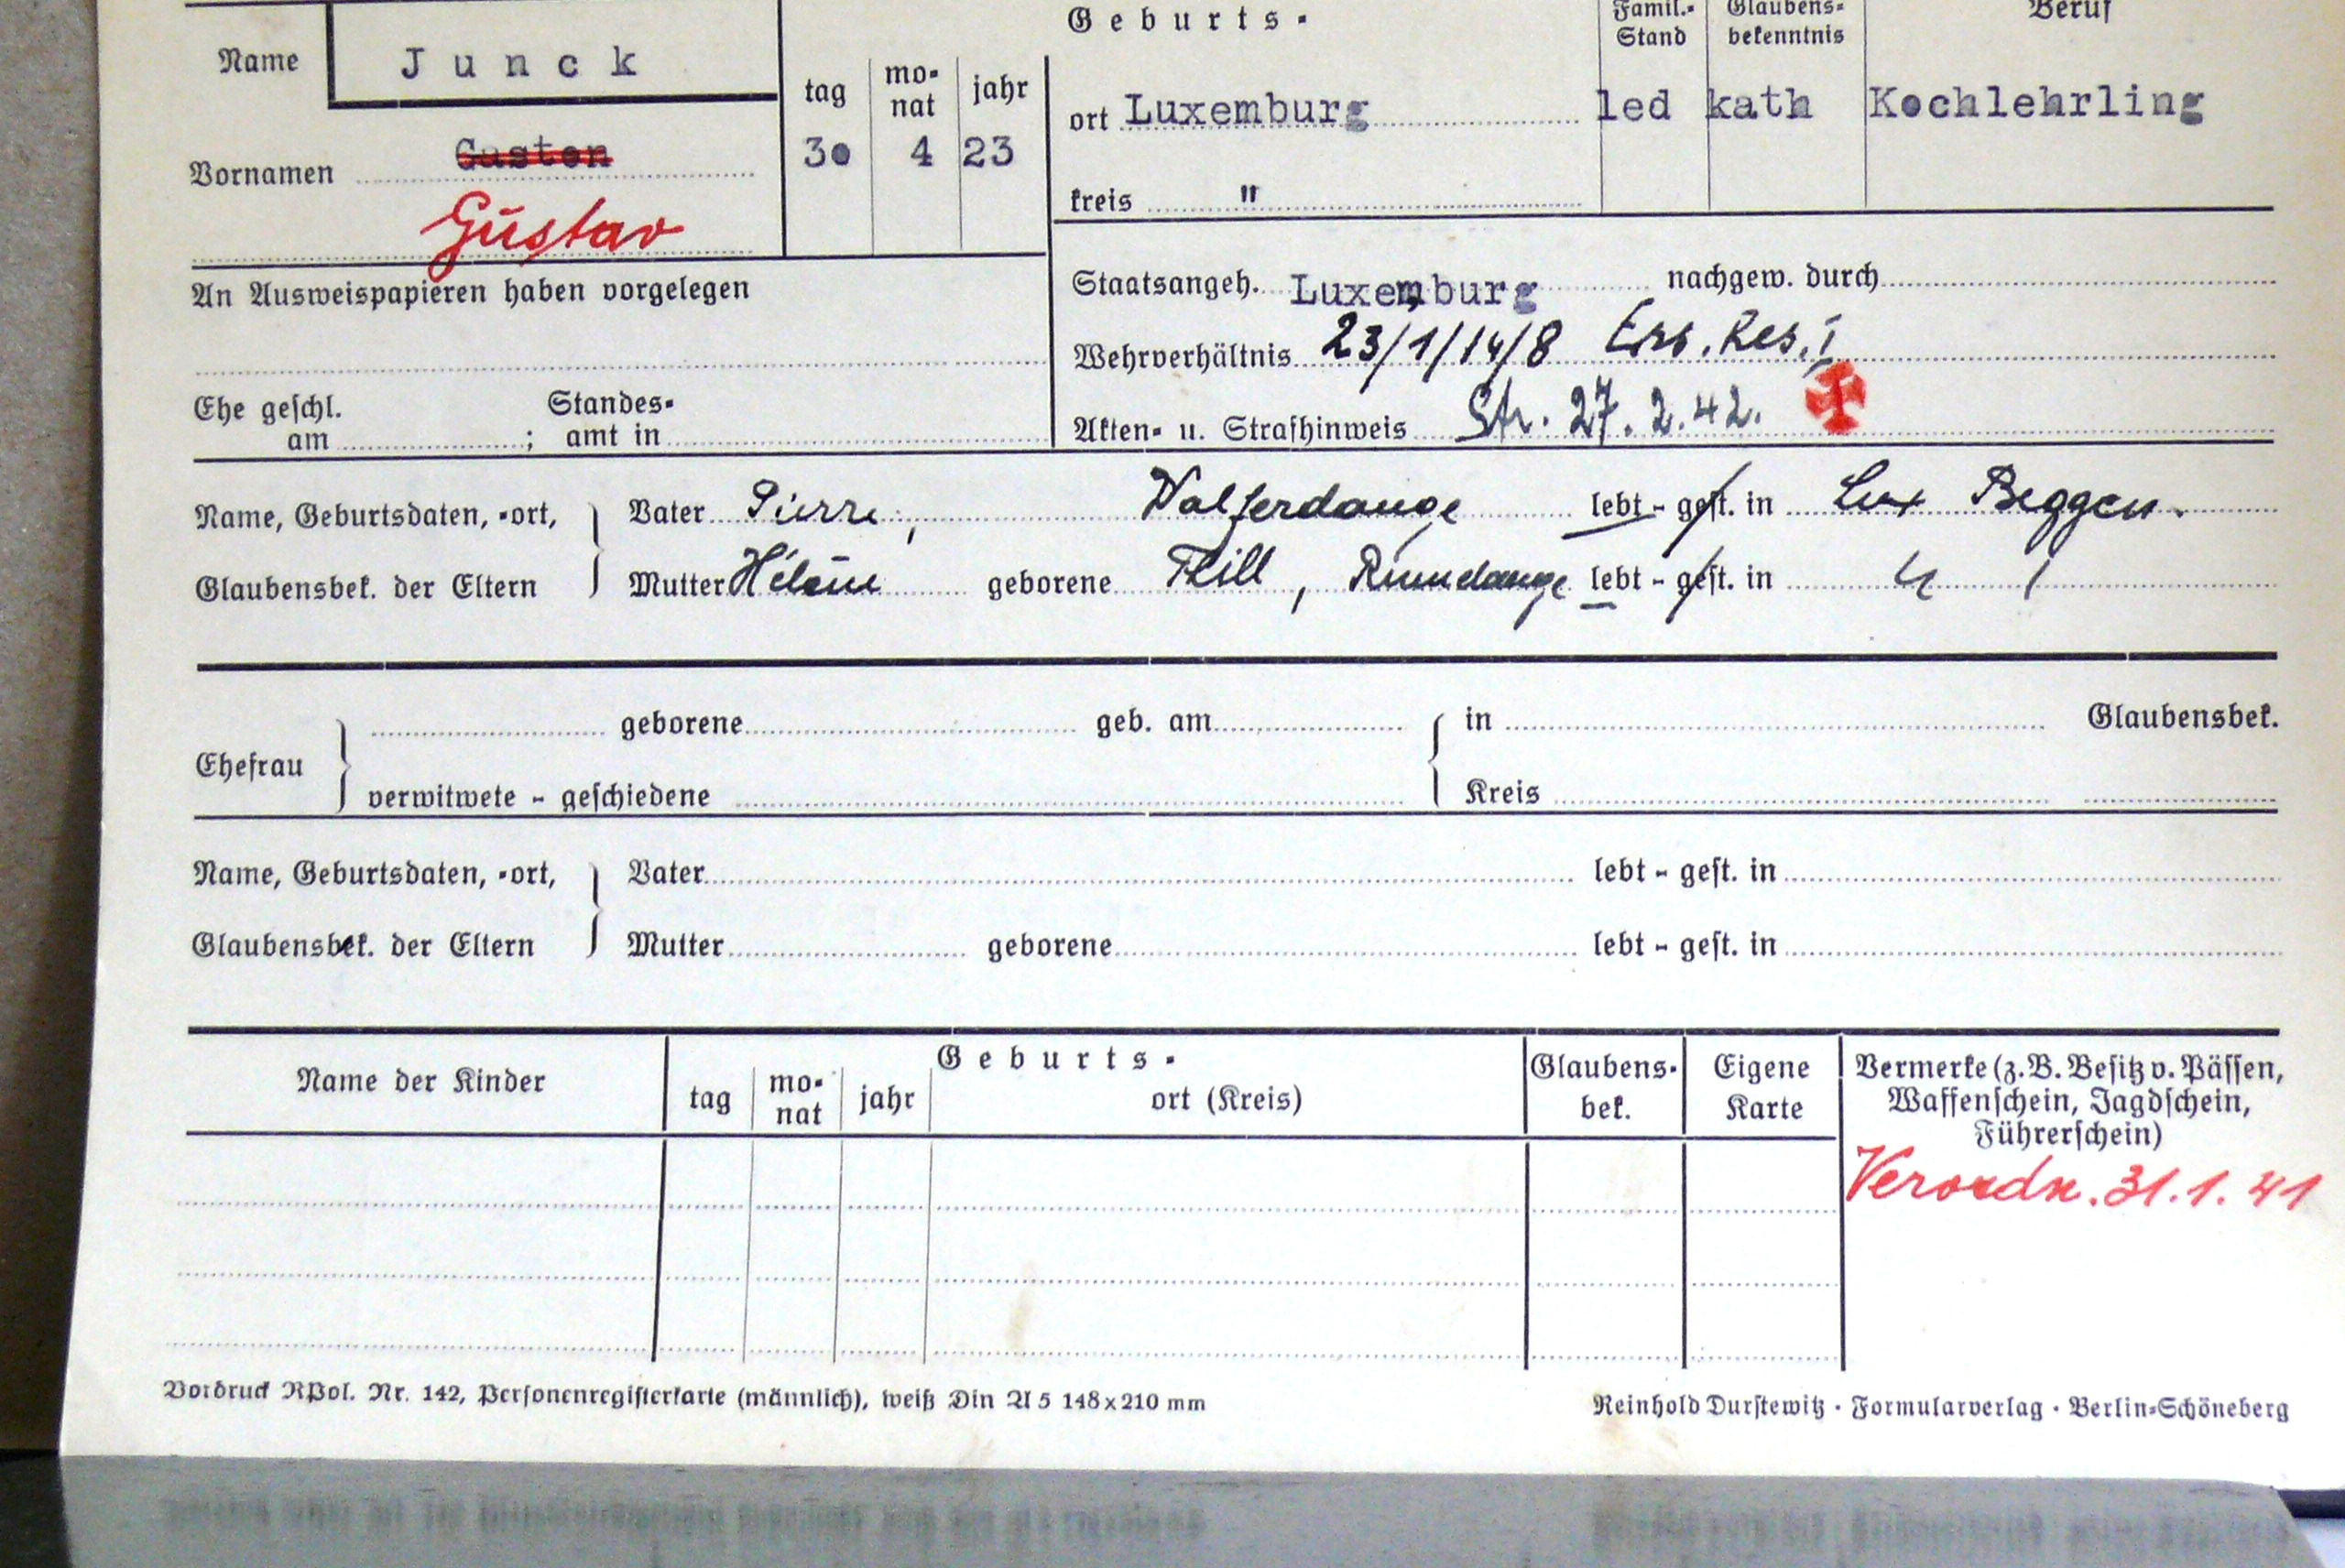 Geburts-
Famil.- Stand
Glaubens- bekenntnis
Beruf
Name Junck
tag monat jahr
ort Luxemburg led kath Kochlehrling
Vornamen Gaston 30 4 23
Gustav
kreis "
An Ausweispapieren haben vorgelegen
Staatsangeh. Luxemburg nachgew. durch
Wehrverhältnis 23/1/14/8 Ers. Res. I
Ehe geschl. am ; Standes- amt in
Akten- u. Strafhinweis Str. 27.2.42.
Name, Geburtsdaten, -ort, Vater Pierre, Walferdange lebt - gest. in Lux Beggen.
Glaubensbek. der Eltern Mutter Hélène geborene Thill, lebt - gest. in
Ehefrau geborene geb. am in Glaubensbek.
verwitwete - geschiedene Kreis
Name, Geburtsdaten, -ort, Vater lebt - gest. in
Glaubensbek. der Eltern Mutter geborene lebt - gest. in
Name der Kinder
Geburts-
tag monat jahr ort (Kreis)
Glaubens- bek.
Eigene Karte
Vermerke (z. B. Besitz v. Pässen,
Waffenschein, Jagdschein,
Führerschein)
Verordn. 31.1.41
Vordruck RPol. Nr. 142, Personenregisterkarte (männlich), weiß Din A 5 148x210 mm
Reinhold Durstewitz · Formularverlag · Berlin-Schöneberg